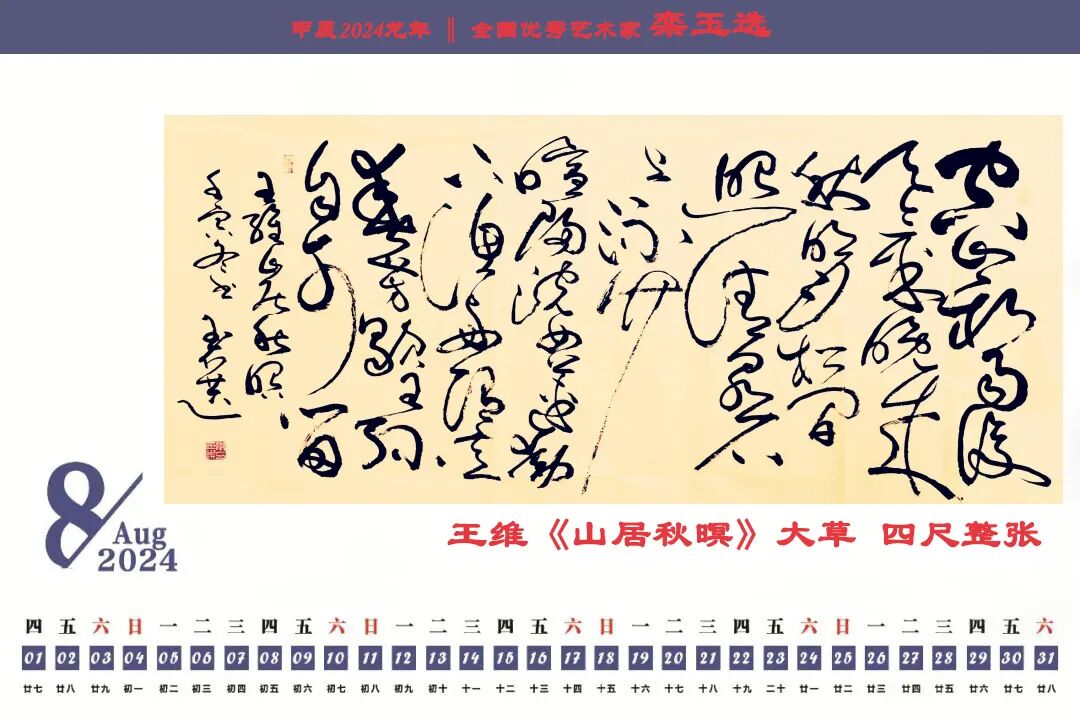 甲辰2024龙年 ‖ 全国优秀艺术家 栾玉选
空山新雨後
天氣晚来
秋明月松间
照清泉石
上流竹
喧歸浣女蓮動
下漁舟随意
春芳歇王孙
自可留
王維山居秋暝
壬寅冬书 玉选
王维《山居秋暝》大草 四尺整张
8
Aug
2024
四 五 六 日 一 二 三 四 五 六 日 一 二 三 四 五 六 日 一 二 三 四 五 六 日 一 二 三 四 五 六
01 02 03 04 05 06 07 08 09 10 11 12 13 14 15 16 17 18 19 20 21 22 23 24 25 26 27 28 29 30 31
廿七 廿八 廿九 初一 初二 初三 初四 初五 初六 初七 初八 初九 初十 十一 十二 十三 十四 十五 十六 十七 十八 十九 二十 廿一 廿二 廿三 廿四 廿五 廿六 廿七 廿八